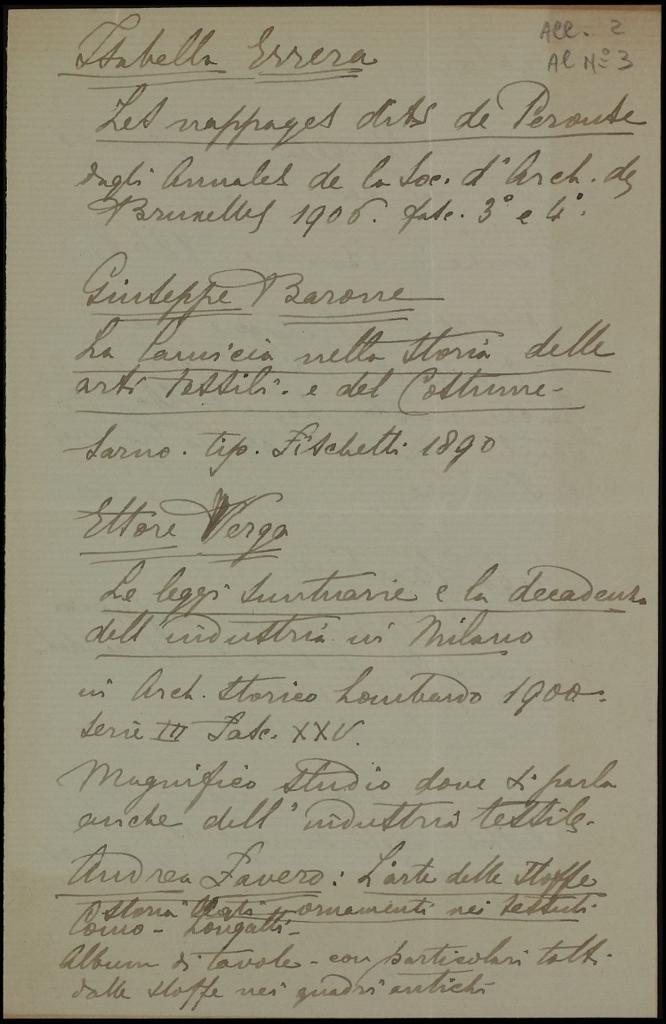 All. 2
Al No 3
Isabella Errera
Les nappages dits de Perouse
dagli Annales de la Soc. d'Arch. de
Bruxelles 1906. fasc. 3° e 4°.
Giuseppe Barone
La Camicia nella storia delle
arti tessili. e del Costume-
Sarno. tip. Fischetti 1890
Ettore Verga
Le leggi suntuarie e la decadenza
dell'industria in Milano
in Arch. Storico Lombardo 1900.
serie III Fasc. XXV.
Magnifico studio dove si parla
anche dell'industria tessile.
Andrea Favero: L'arte delle Stoffe
Storia degli ornamenti nei tessuti
Como - Longatti-
Album di tavole - con particolari tolti
dalle stoffe nei quadri antichi